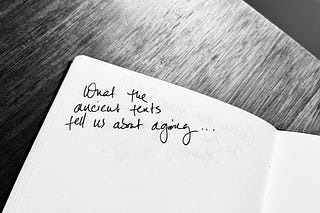 What the
ancient texts
tell us about aging...